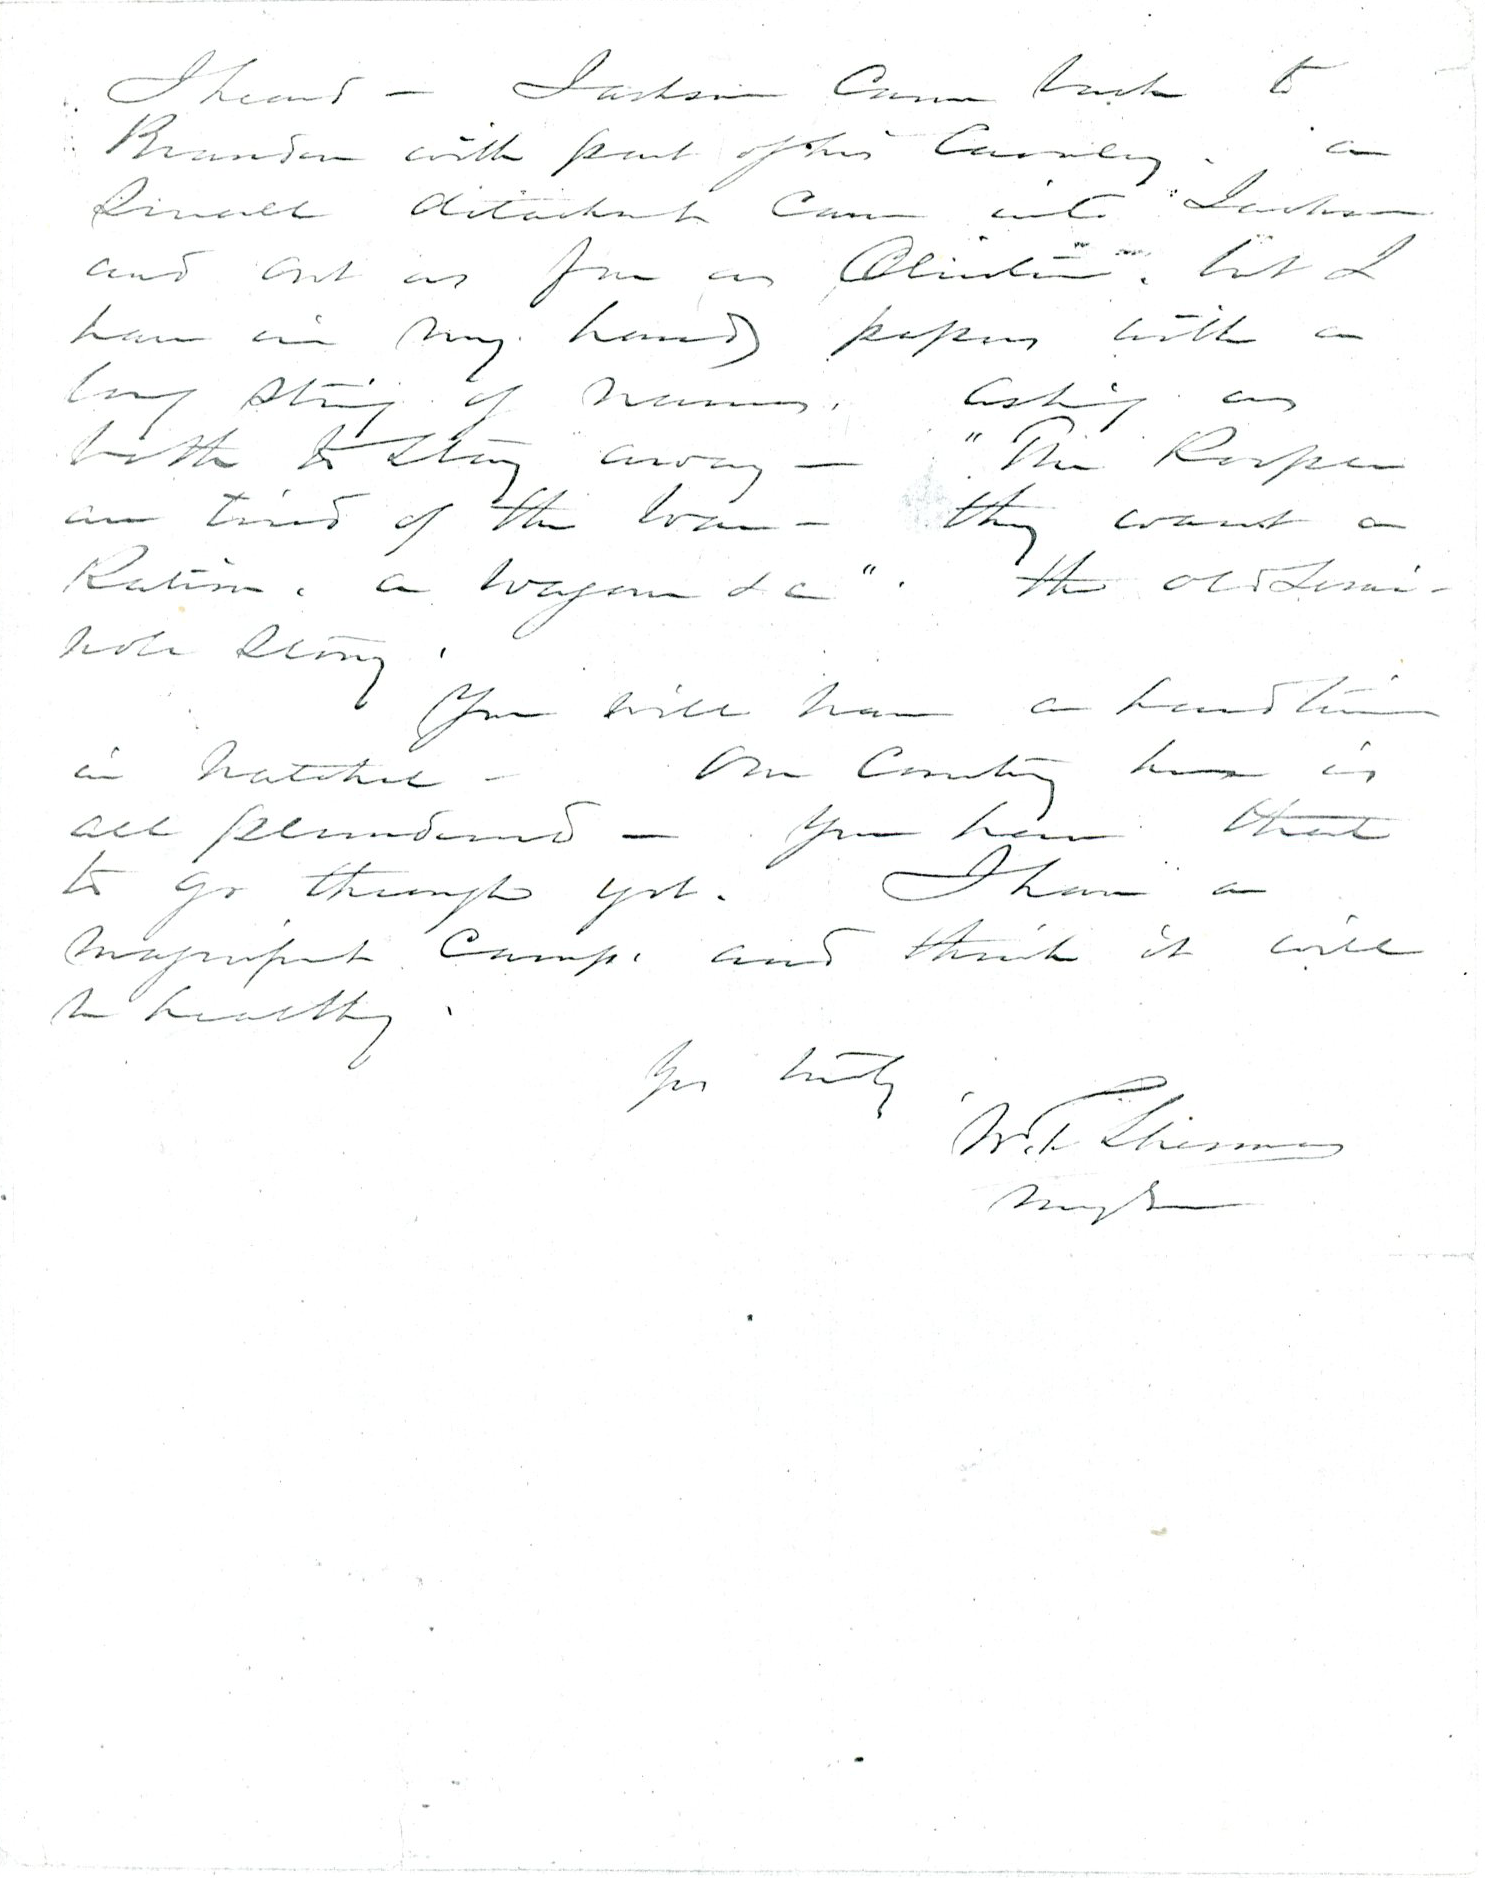 I heard — Jackson Came back to
Brandon with part of his Cavalry. a
Small detachmt Came into Jackson
and out as far as Clinton. but I
have in my hands papers with a
long string of names. asking us
both to Stay away — "The People
are tired of the war — they want a
Ration. a wagon &c". the old Semi-
nole Story.
You will have a hard time
in Natchez — Our Country here is
all plundered — You have that
to go through yet. I have a
magnificent Camp. and think it will
be healthy.
Yrs truly
W. T. Sherman
Maj Gen